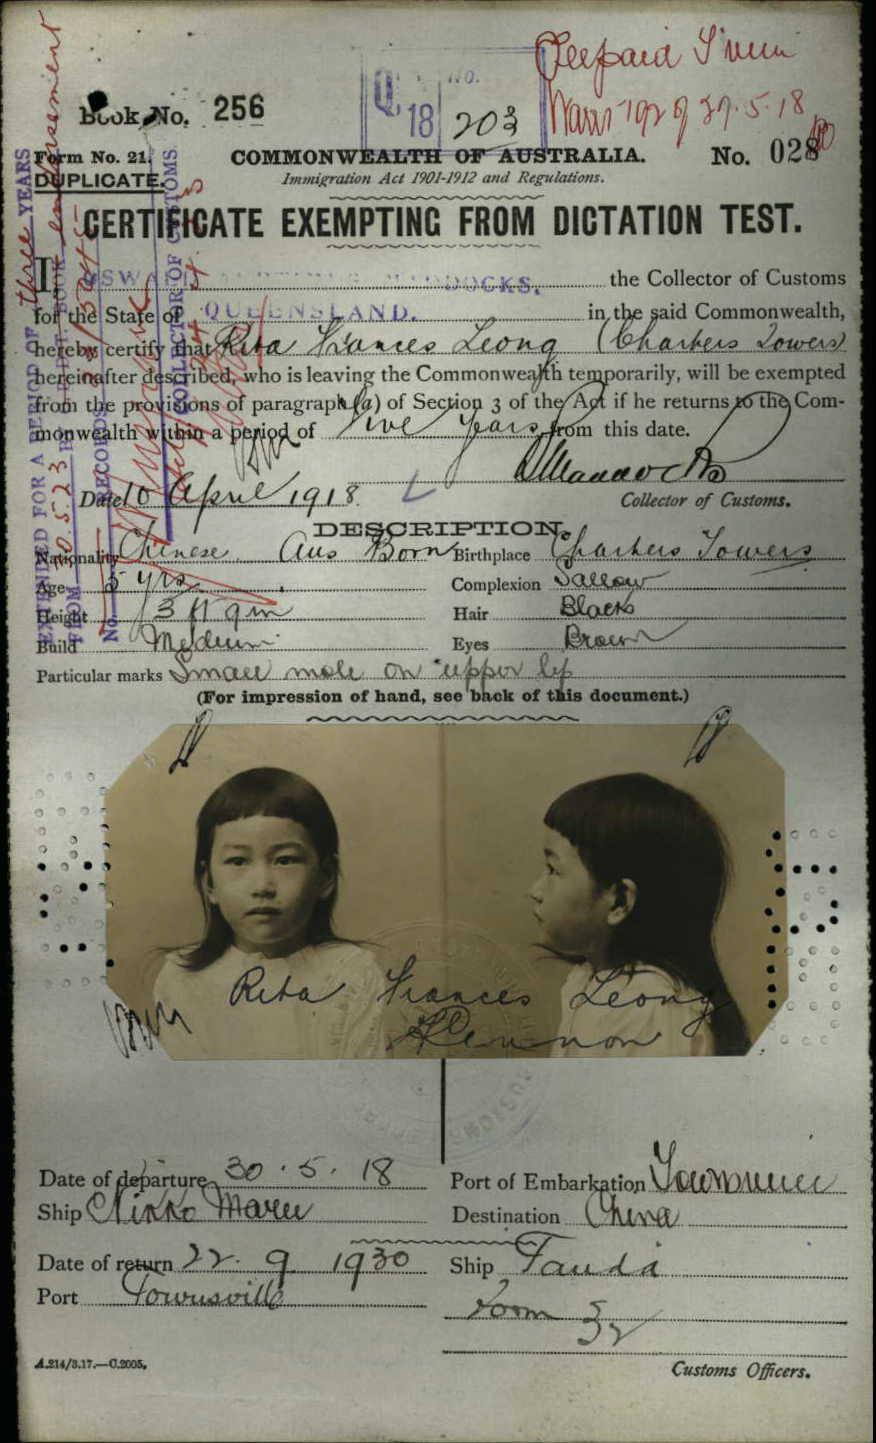 Prepaid
Book No. 256
Q. NO.
18 203
29.5.18
Form No. 21.
DUPLICATE.
COMMONWEALTH OF AUSTRALIA.
Immigration Act 1901-1912 and Regulations.
No. 028
CERTIFICATE EXEMPTING FROM DICTATION TEST.
I, MADDOCKS, the Collector of Customs
for the State of QUEENSLAND. in the said Commonwealth,
hereby certify that Rita Frances Leong (Charters Towers)
hereinafter described, who is leaving the Commonwealth temporarily, will be exempted
from the provisions of paragraph (a) of Section 3 of the Act if he returns to the Com-
monwealth within a period of Five Years from this date.
Date 10 April 1918
Collector of Customs.
EXTENDED FOR A PERIOD OF three YEARS
FROM 10.5.23
COLLECTOR OF CUSTOMS
DESCRIPTION.
Nationality Chinese Aus Born Birthplace Charters Towers
Age 5 yrs Complexion Sallow
Height 3 ft 9 in Hair Black
Build Medium Eyes Brown
Particular marks Small mole on upper lip
(For impression of hand, see back of this document.)
Rita Frances Leong
Date of departure 30.5.18 Port of Embarkation Townsville
Ship Nikko Maru Destination China
Date of return 22.9.1930 Ship Tanda
Port Townsville Form 32
A.214/3.17.—C.2005.
Customs Officers.